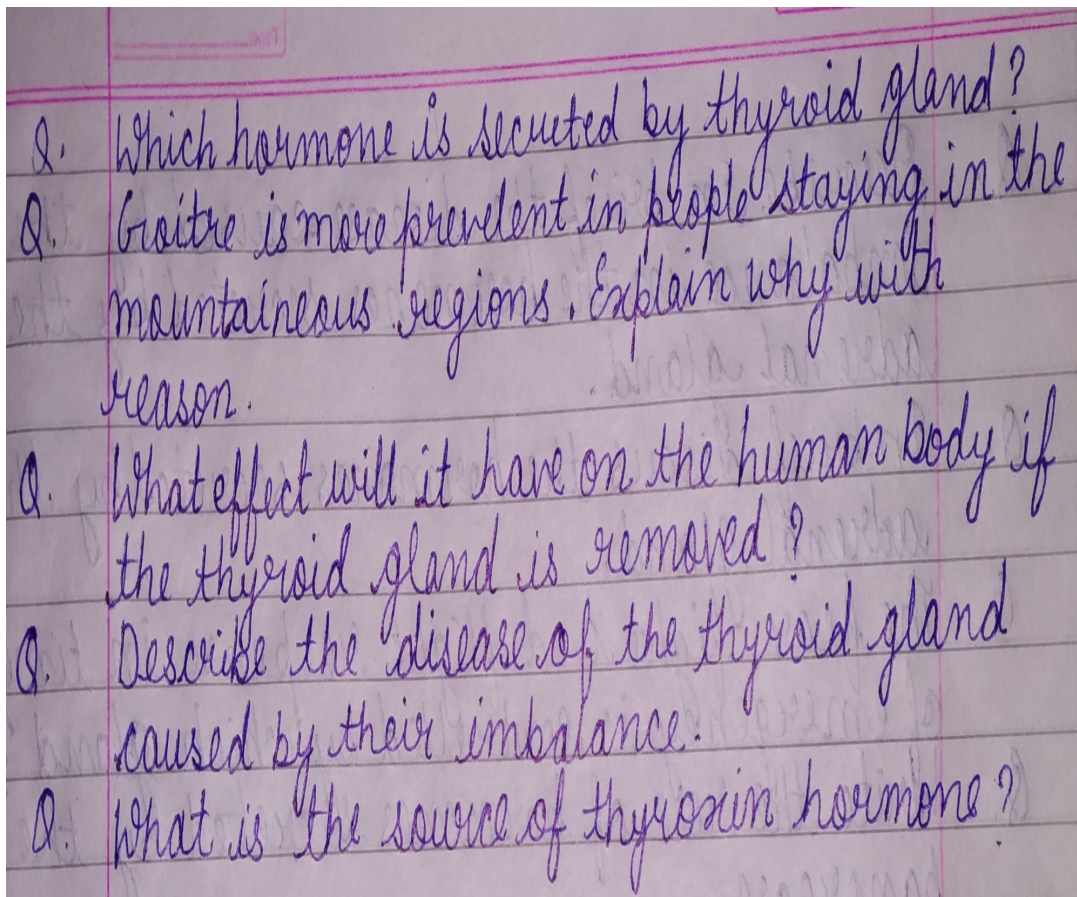 Q. Which hormone is secreted by thyroid gland?
Q. Goitre is more prevelent in people staying in the
mountaineous regions. Explain why with
reason.
Q. What effect will it have on the human body if
the thyroid gland is removed?
Q. Describe the disease of the thyroid gland
caused by their imbalance.
Q. What is the source of thyroxin hormone?